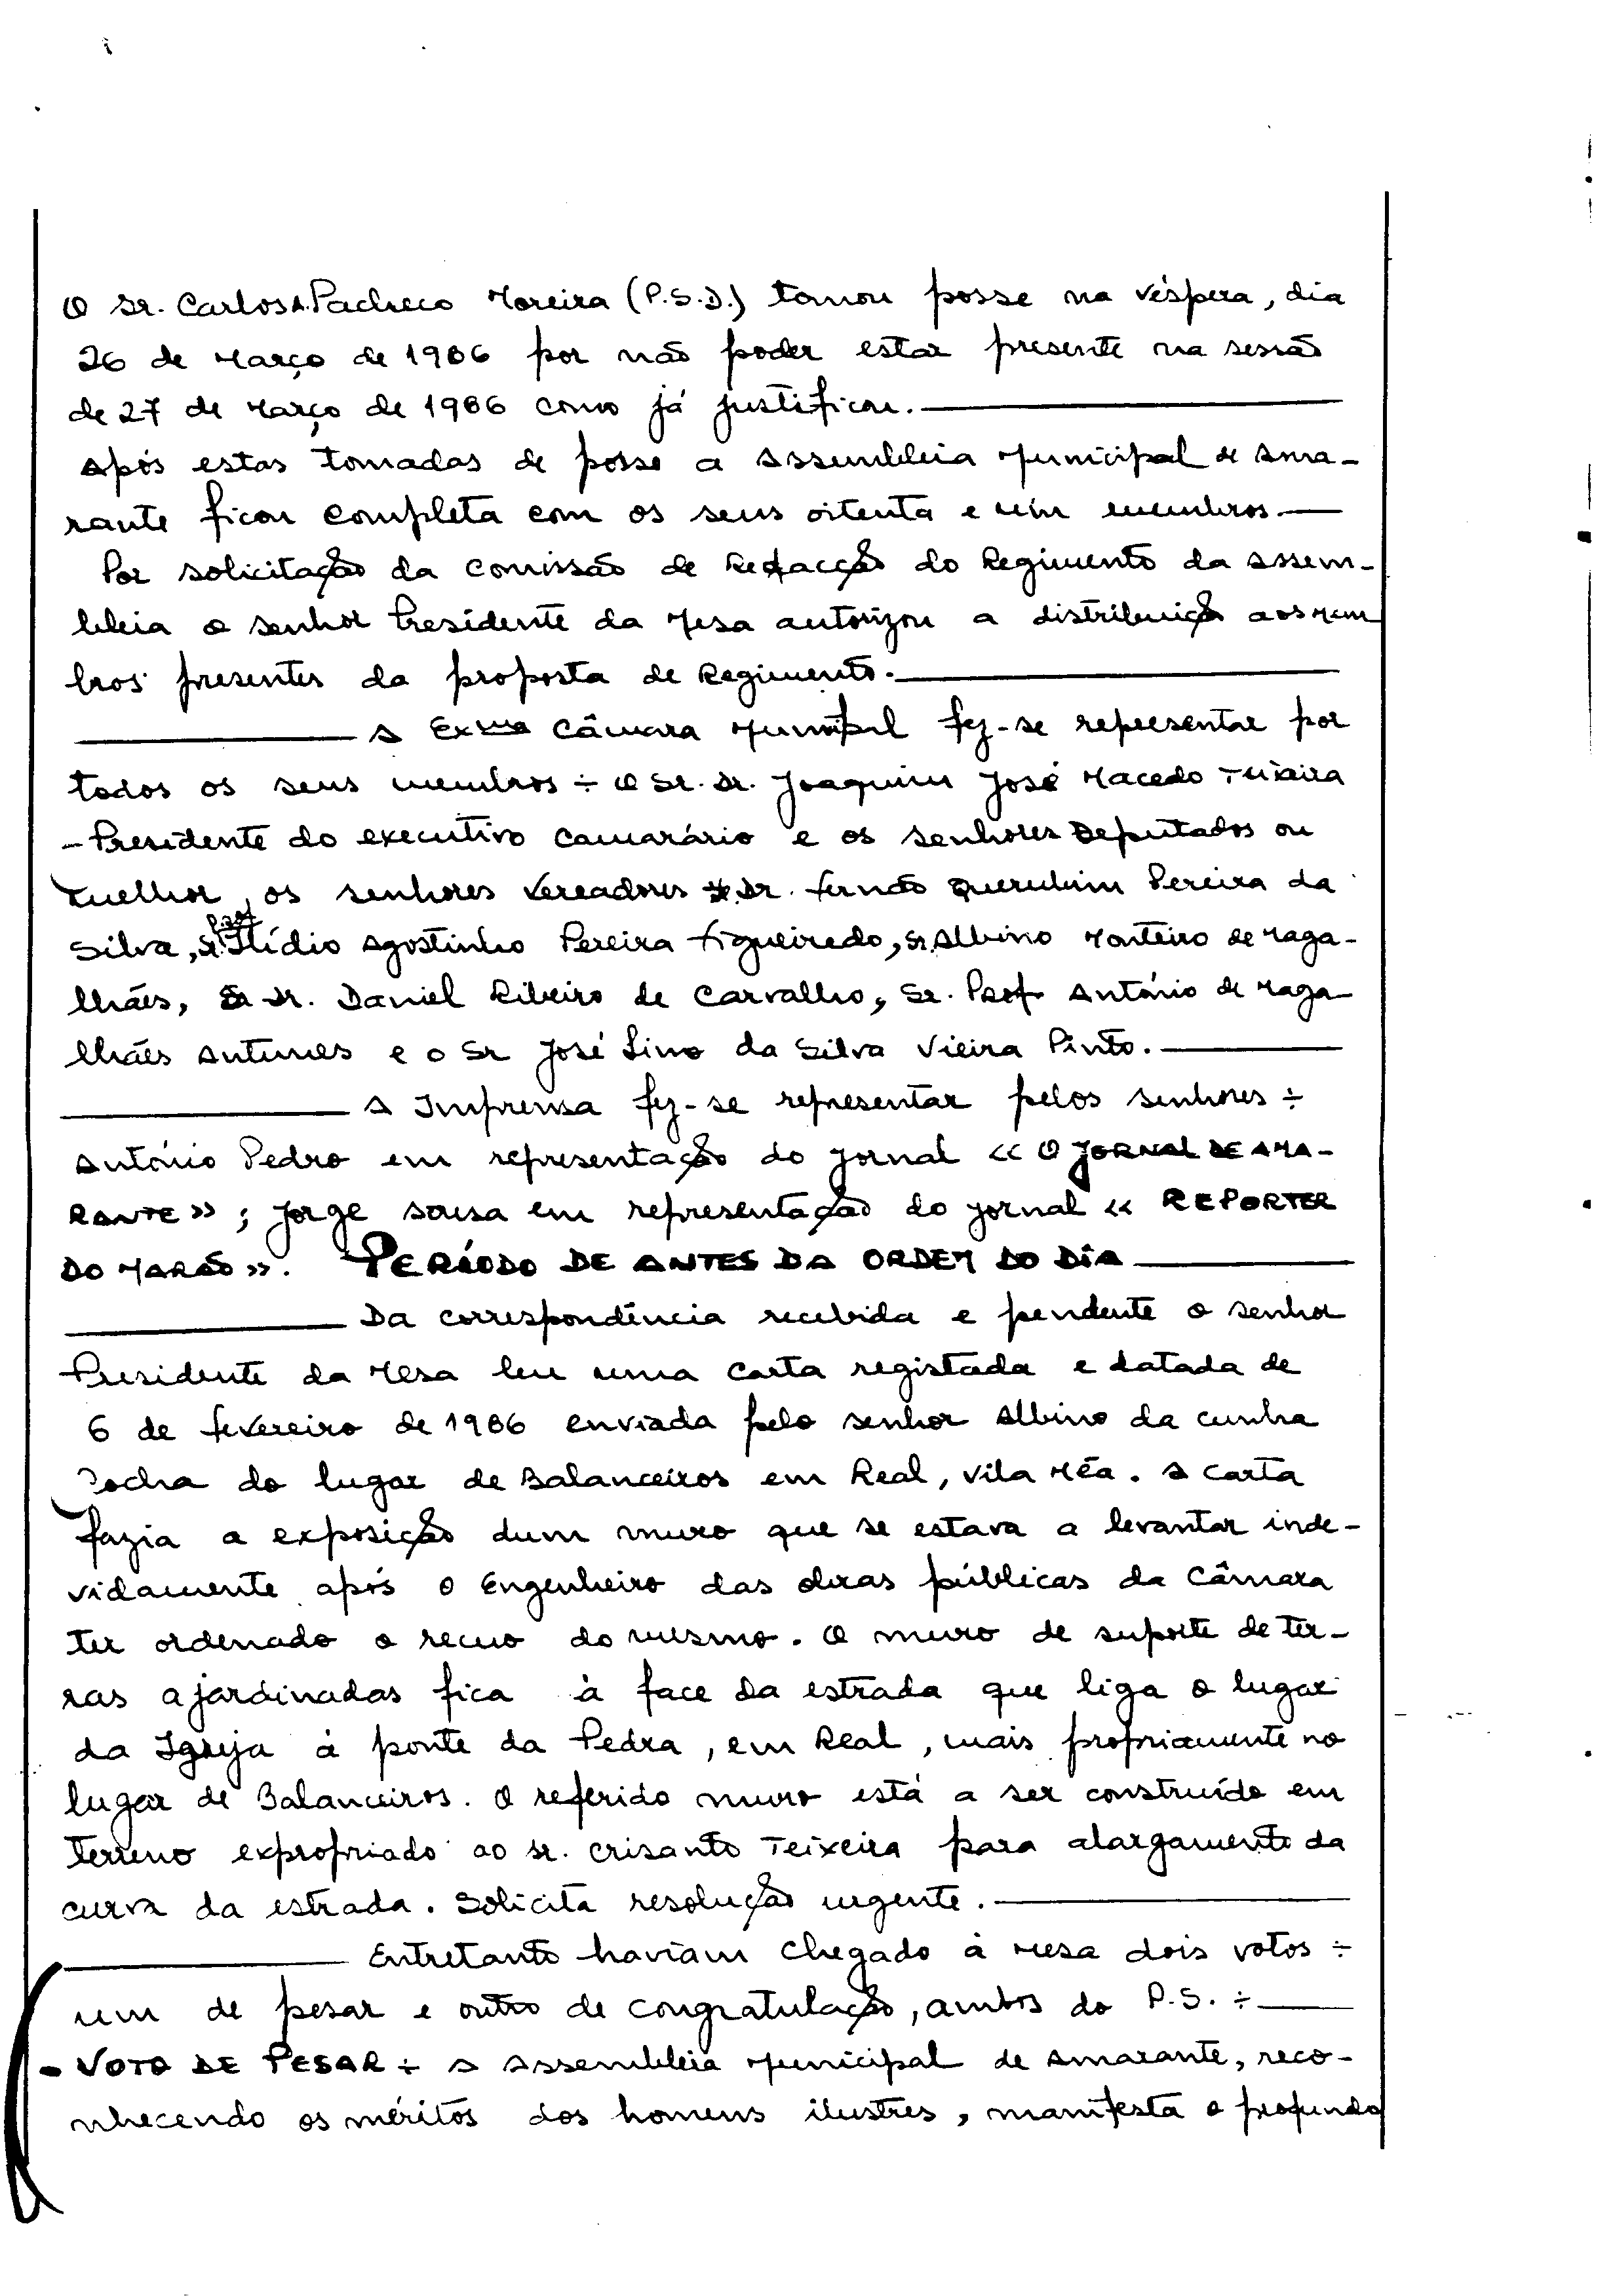 O Sr. Carlos A. Pacheco Moreira (P.S.D.) tomou posse na véspera, dia
26 de Março de 1986 por não poder estar presente na sessão
de 27 de Março de 1986 como já justificou.
Após estas tomadas de posse a Assembleia Municipal de Ama-
rante ficou completa com os seus oitenta e um membros.
Por solicitação da Comissão de Redacção do Regimento da Assem-
bleia o senhor Presidente da Mesa autorizou a distribuição aos mem
bros presentes da proposta de Regimento.
A Exma Câmara Municipal fez-se representar por
todos os seus membros ÷ O Sr. Dr. Joaquim José Macedo Teixeira
- Presidente do executivo camarário e os senhores Deputados ou
melhor, os senhores Vereadores Dr. Fernão Querubim Pereira da
Silva, Sr. Prof Ilídio Agostinho Pereira Figueiredo, Sr. Albino Monteiro de Maga-
lhães, Sr Dr. Daniel Ribeiro de Carvalho, Sr. Prof António de Maga-
lhães Antunes e o Sr José Lino da Silva Vieira Pinto.
A Imprensa fez-se representar pelos senhores ÷
António Pedro em representação do jornal « O JORNAL DE AMA-
RANTE » ; Jorge Sousa em representação do jornal « REPORTER
DO MARÃO ». PERÍODO DE ANTES DA ORDEM DO DIA
Da correspondência recebida e pendente o senhor
Presidente da Mesa leu uma carta registada e datada de
6 de Fevereiro de 1986 enviada pelo senhor Albino da Cunha
Rocha do lugar de Balanceiros em Real, Vila Mêa. A carta
fazia a exposição dum muro que se estava a levantar inde-
vidamente após o Engenheiro das obras públicas da Câmara
ter ordenado o recuo do mesmo. O muro de suporte de ter-
ras ajardinadas fica à face da estrada que liga o lugar
da Igreja à ponte da Pedra, em Real, mais propriamente no
lugar de Balanceiros. O referido muro está a ser construído em
terreno expropriado ao Sr. Crisanto Teixeira para alargamento da
curva da estrada. Solicita resolução urgente.
Entretanto haviam chegado à Mesa dois votos ÷
um de pesar e outro de congratulação, ambos do P.S. ÷
- VOTO DE PESAR ÷ A Assembleia Municipal de Amarante, reco-
nhecendo os méritos dos homens ilustres, manifesta o profundo